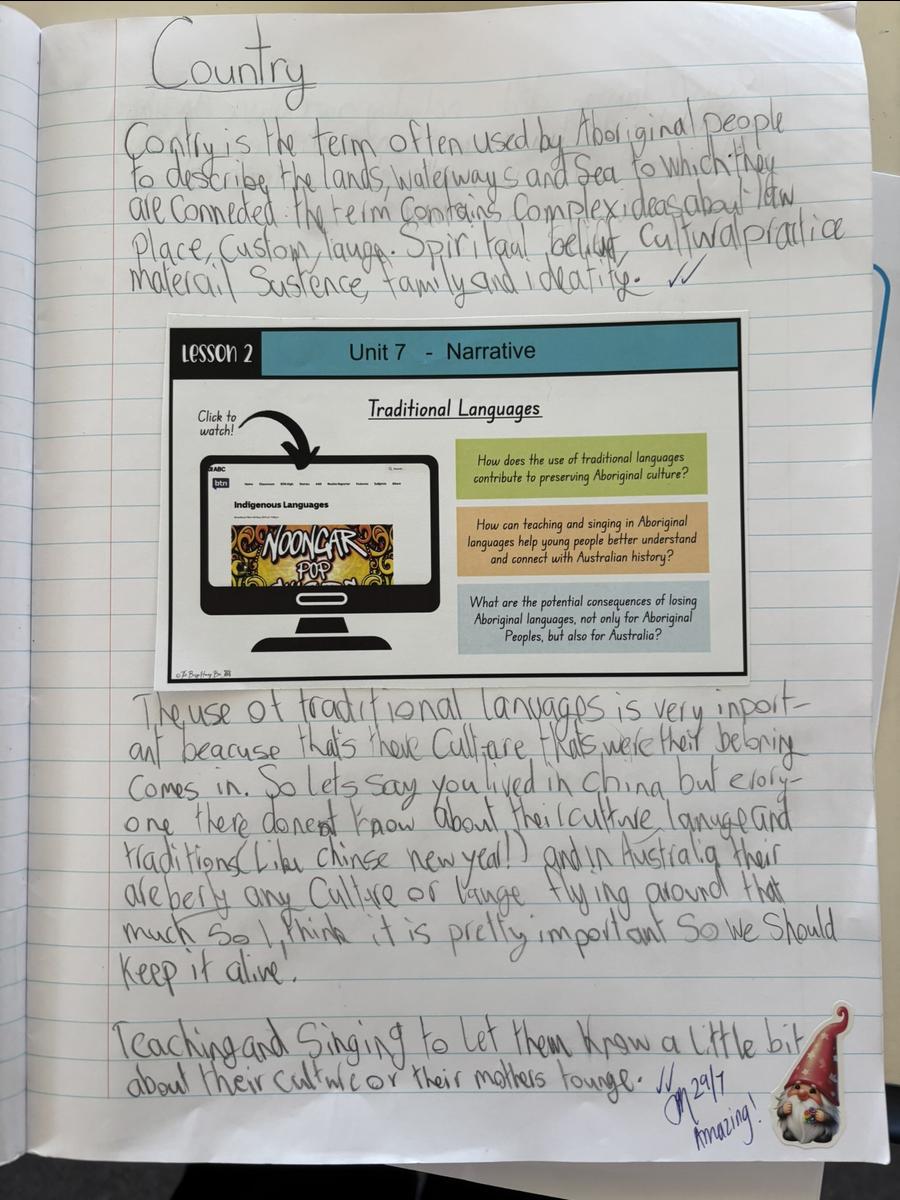 Country
Contry is the term often used by Aboriginal people
to describe the lands, waterways and Sea to which they
are Conneded. the term Contains Complex ideas about law
Place, Custom, lauge. Spiritaul belief, Cultural practice
materail Sustence, family and ideatity.
Lesson 2
Unit 7 - Narrative
Traditional Languages
Click to
watch!
ABC
btn
Indigenous Languages
NOONGAR
POP
How does the use of traditional languages
contribute to preserving Aboriginal culture?
How can teaching and singing in Aboriginal
languages help young people better understand
and connect with Australian history?
What are the potential consequences of losing
Aboriginal languages, not only for Aboriginal
Peoples, but also for Australia?
The use of traditional lanuages is very inport-
ant beacuse thats there Culture thats were their beloning
Comes in. So Lets say you lived in China but evory-
one there donent know about their culture lanuge and
traditions (Like chinse new year!) and in Australia their
are berly any Culture or lauge flying around that
much So I think it is pretty important So we Should
Keep it alive!
Teaching and Singing to let them know a little bit
about their culture or their mothers tounge.
29/7
Amazing!